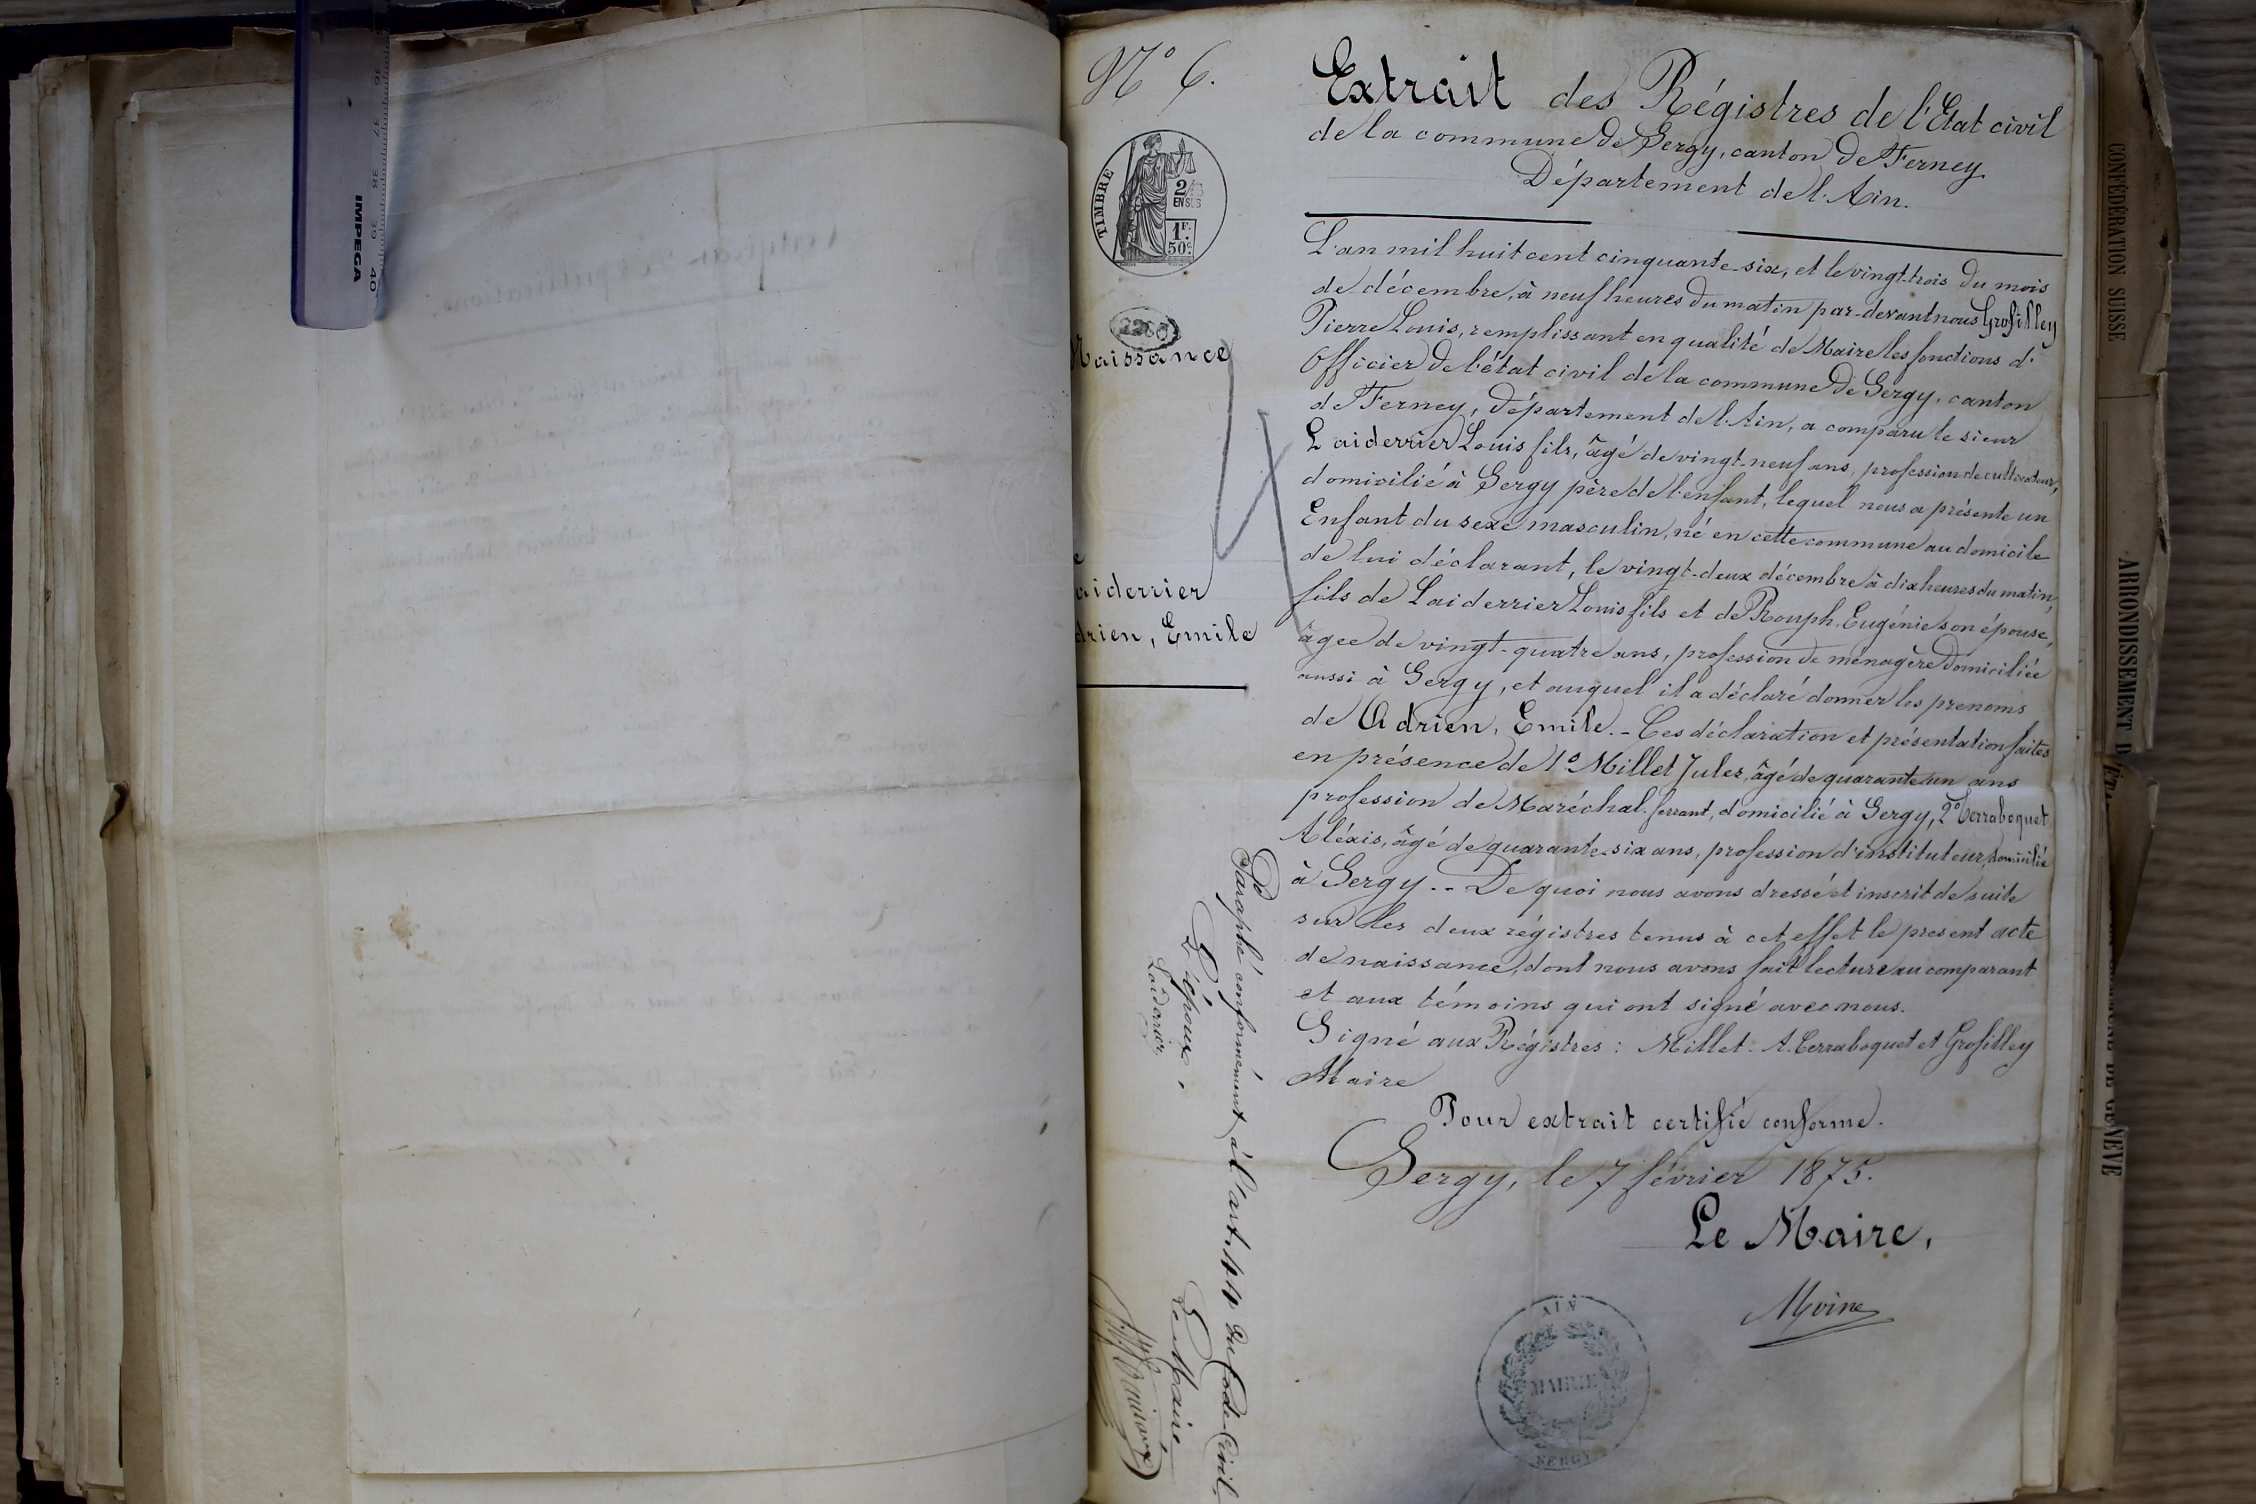 N° 6.
TIMBRE
2/10
EN SUS
1F.
50c.
Naissance
aiderrier
drien, Emile
Extrait des Régistres de l'Etat civil
de la commune de Sergy, canton de Ferney
Département de l'Ain.
L'an mil huit cent cinquante-six, et le vingt-trois du mois
de décembre, à neuf heures du matin par-devant nous Grosfilley
Pierre Louis, remplissant en qualité de Maire les fonctions d'
Officier de l'état civil de la commune de Sergy, canton
de Ferney, département de l'Ain, a comparu le sieur
Laiderrier Louis fils, âgé de vingt-neuf ans, profession de cultivateur,
domicilié à Sergy père de l'enfant, lequel nous a présenté un
Enfant du sexe masculin, né en cette commune au domicile
de lui déclarant, le vingt-deux décembre à dix heures du matin,
fils de Laiderrier Louis fils et de Rouph Eugénie son épouse,
âgée de vingt-quatre ans, profession de ménagère domiciliée
aussi à Sergy, et auquel il a déclaré donner les prenoms
de Adrien, Emile. - Ces déclaration et présentation faites
en présence de 1° Millet Jules, âgé de quarante un ans
profession de Maréchal-ferrant, domicilié à Sergy, 2° Terraboquet
Aléxis, âgé de quarante-six ans, profession d'instituteur, domicilié
à Sergy. - - De quoi nous avons dressé et inscrit de suite
sur les deux régistres tenus à cet effet le présent acte
de naissance, dont nous avons fait lecture au comparant
et aux témoins qui ont signé avec nous.
Signé aux Régistres : Millet. A. Terraboquet et Grosfilley
Maire
Pour extrait certifié conforme.
Sergy, le 7 février 1875.
Le Maire,
Moine
AIN
MAIRIE
SERGY
Paraphé conformément à l'art. 44 du Code Civil
L'époux,
Le Maire
Laiderrier
IMPEGA
36 37 38 39 40
CONFÉDÉRATION SUISSE
ARRONDISSEMENT D'ÉTA
DE GENÈVE